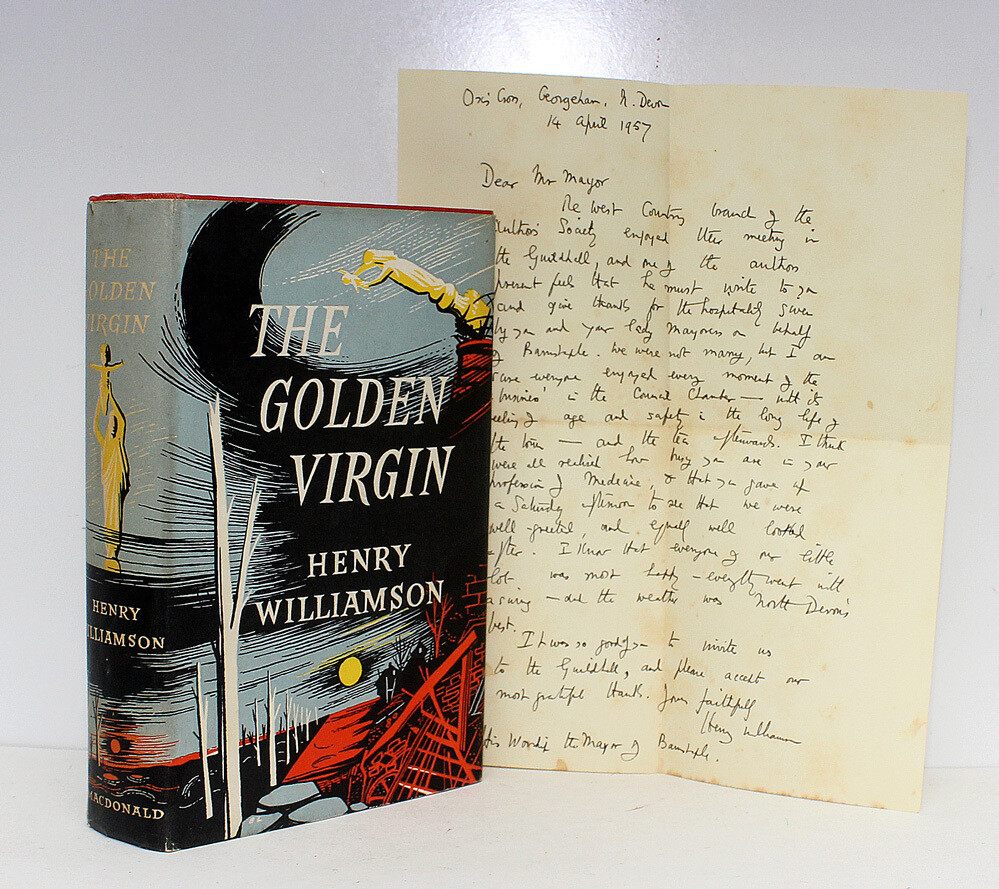 THE
GOLDEN
VIRGIN
HENRY
WILLIAMSON
MACDONALD
THE
GOLDEN
VIRGIN
HENRY
WILLIAMSON
BL
Ox's Cross, Georgeham, N. Devon
14 April 1957
Dear Mr Mayor
The West Country branch of the
Authors' Society enjoyed their meeting in
the Guildhall, and one of the authors
present feels that he must write to you
and give thanks for the hospitality given
by you and your lady Mayoress on behalf
of Barnstaple. We were not many, but I am
sure everyone enjoyed every moment of the
'business' in the Council Chamber — with its
feeling of age and safety in the long life of
the town — and the tea afterwards. I think
we all realised how busy you are in your
profession of Medicine, & that you gave up
a Saturday afternoon to see that we were
well greeted, and equally well looked
after. I know that everyone of our little
lot was most happy — everything went with
a swing — and the weather was North Devon's
best.
It was so good of you to invite us
to the Guildhall, and please accept our
most grateful thanks. Yours faithfully
Henry Williamson
His Worship the Mayor of Barnstaple.